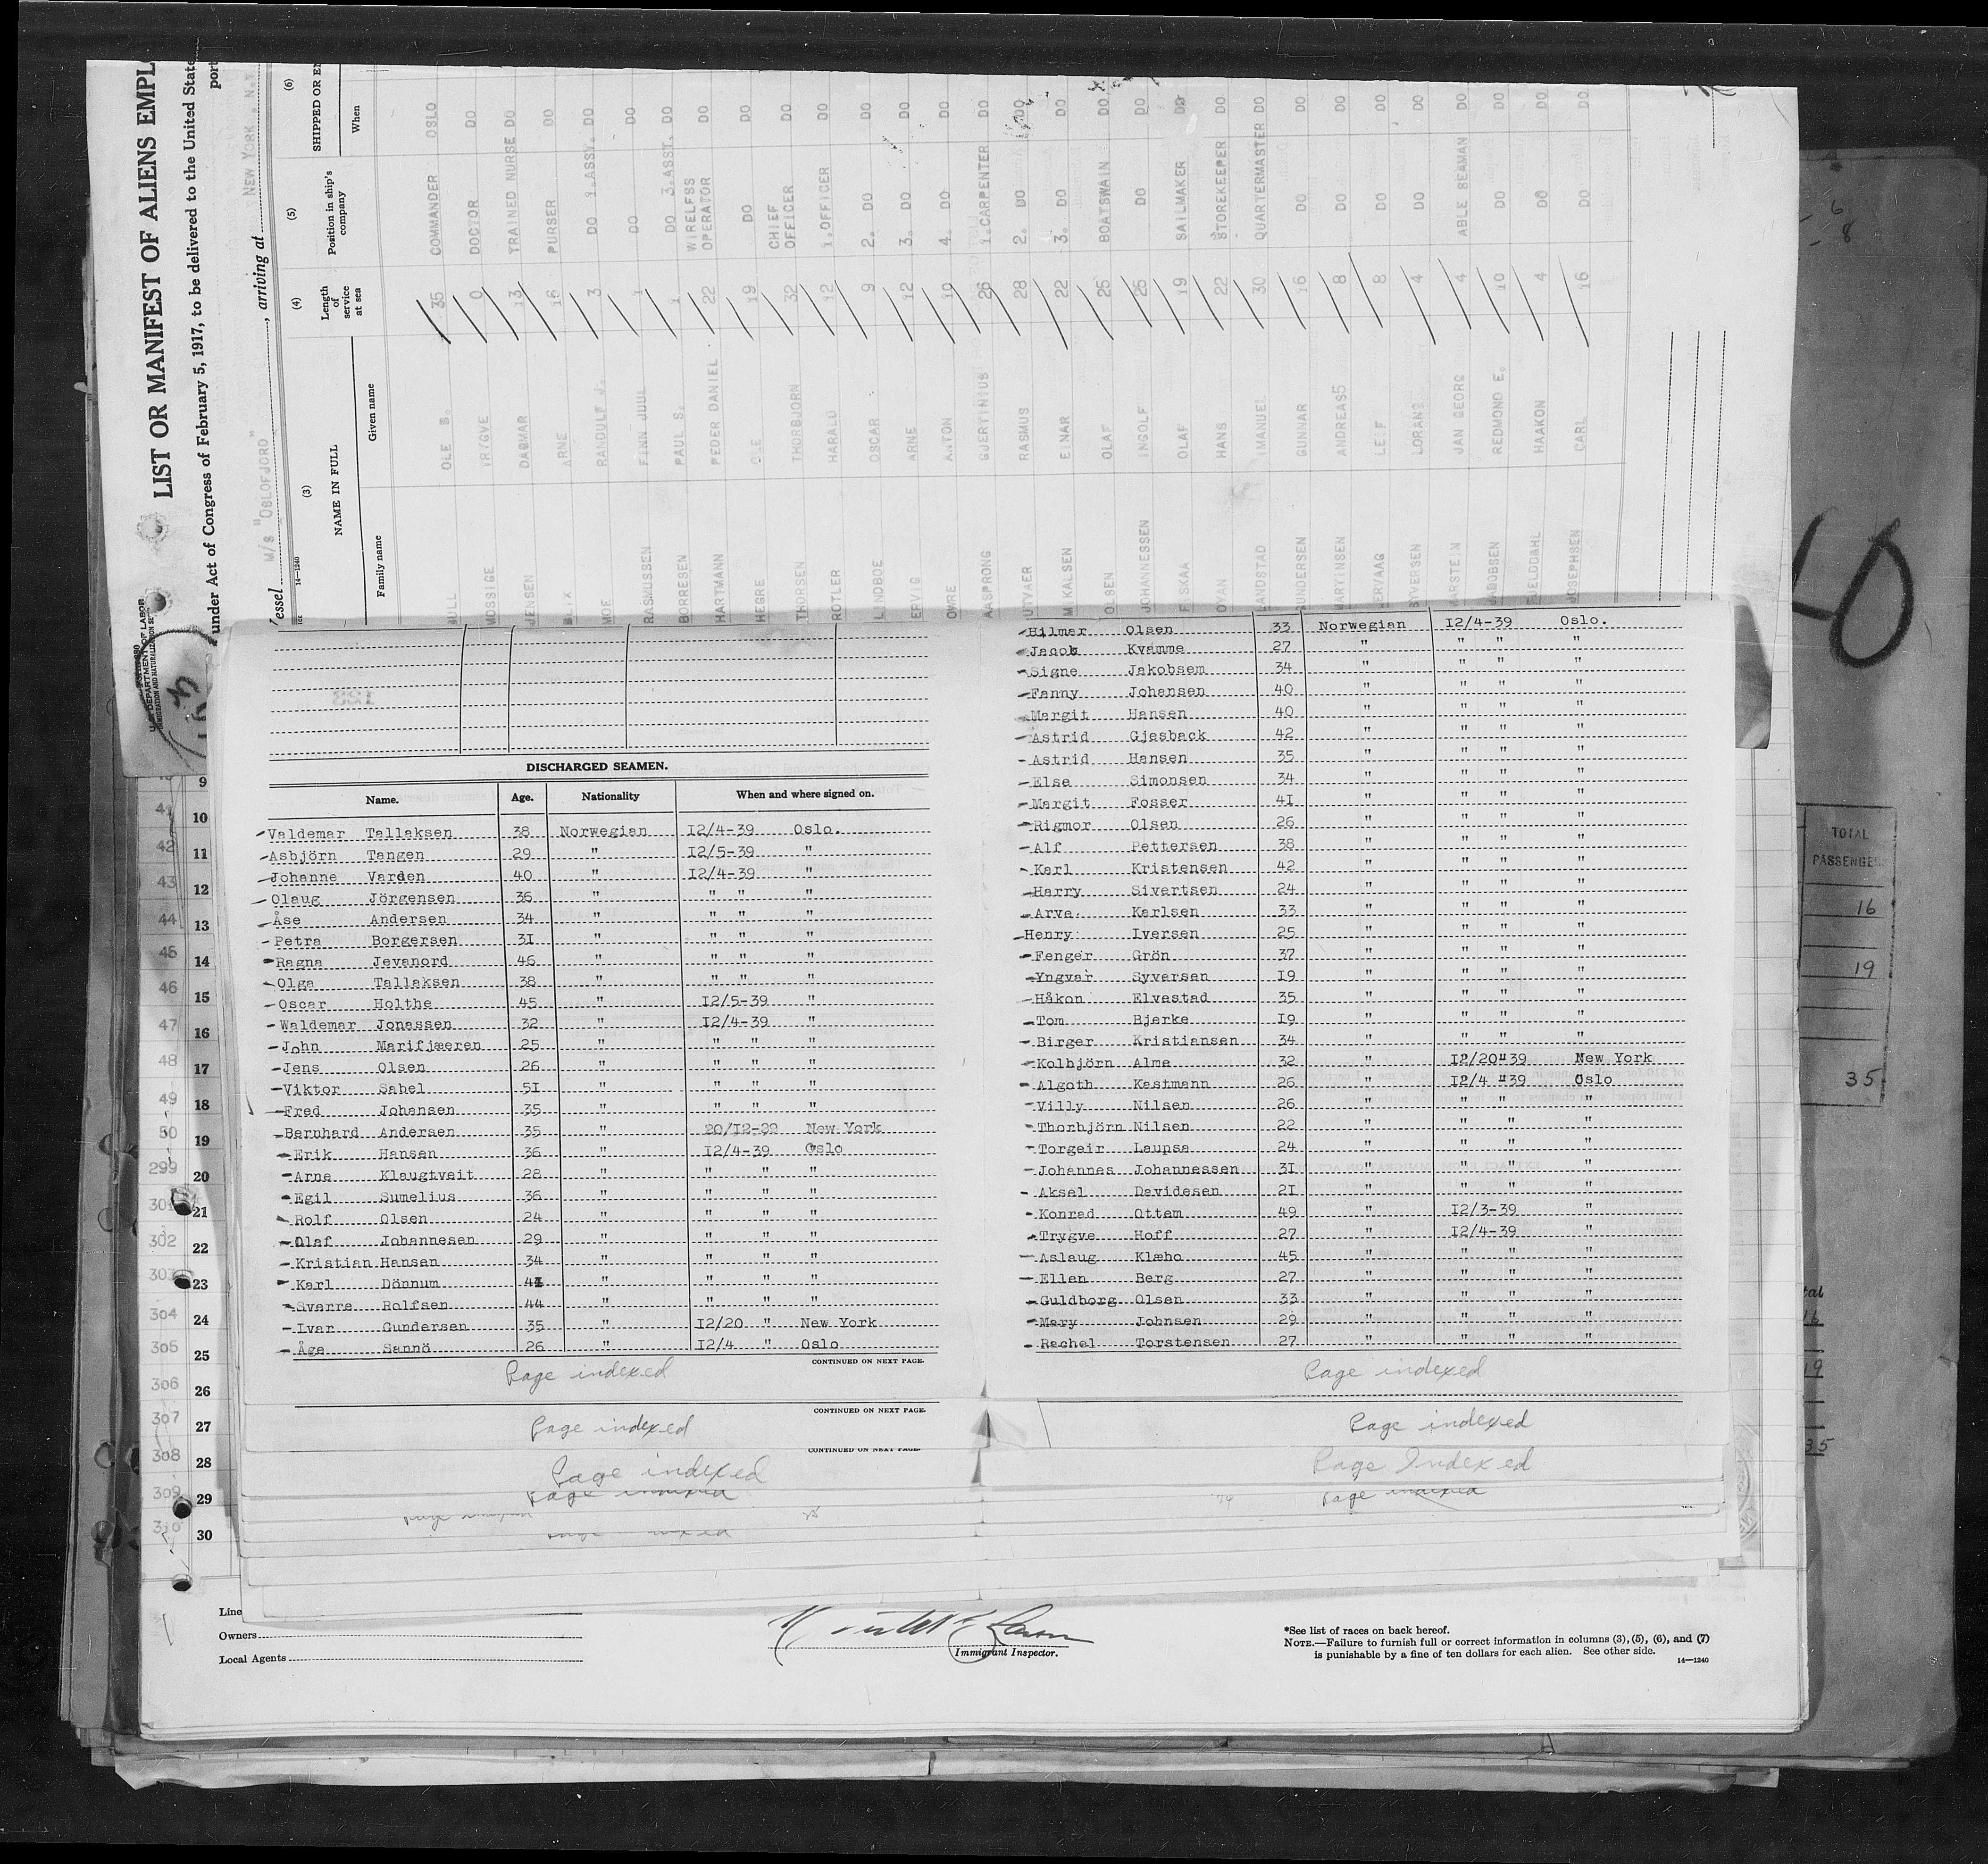 LIST OR MANIFEST OF ALIENS EMPL
under Act of Congress of February 5, 1917, to be delivered to the United State
port
Vessel M/S "OSLOFJORD", arriving at NEW YORK, N.Y.
U. S. DEPARTMENT OF LABOR
IMMIGRATION AND NATURALIZATION SE
14—1240
(3) (4) (5) (6)
NAME IN FULL Length of service at sea Position in ship's company SHIPPED OR EN
Family name Given name When
BULL OLE B. 35 COMMANDER OSLO
MOSSIGE TRYGVE 0 DOCTOR DO
JENSEN DAGMAR 13 TRAINED NURSE DO
BLIX ARNE 16 PURSER DO
MOE RANDULF J. 3 DO 1.ASST. DO
RASMUSSEN FINN JUUL 1 DO DO
BORRESEN PAUL S. 1 DO 3.ASST. DO
HARTMANN PEDER DANIEL 22 WIRELESS OPERATOR DO
HEGRE OLE 19 DO DO
THORSEN THORBJORN 32 CHIEF OFFICER DO
ROTLER HARALD 12 1.OFFICER DO
LINDBOE OSCAR 9 2. DO DO
ERVIG ARNE 12 3. DO DO
OMRE ANTON 10 4. DO DO
AASPRONG GJERTINIUS 26 1.CARPENTER DO
UTVAER RASMUS 28 2. DO DO
MIKALSEN EINAR 22 3. DO DO
OLSEN OLAF 25 BOATSWAIN DO
JOHANNESSEN INGOLF 25 DO DO
FISKAA OLAF 19 SAILMAKER DO
OYAN HANS 22 STOREKEEPER DO
LANDSTAD IMANUEL 30 QUARTERMASTER DO
GUNDERSEN GUNNAR 16 DO DO
MARTINSEN ANDREAS 8 DO DO
HERVAAG LEIF 8 DO DO
SYVERSEN LORANG 4 DO DO
MARSTEIN JAN GEORG 4 ABLE SEAMAN DO
JACOBSEN REDMOND E. 10 DO DO
HAAKON 4 DO DO
JOSEPHSEN CARL 16 DO DO
DISCHARGED SEAMEN.
Name. Age. Nationality When and where signed on.
Valdemar Tallaksen 38 Norwegian 12/4-39 Oslo.
Asbjörn Tangen 29 " 12/5-39 "
Johanne Varden 40 " 12/4-39 "
Olaug Jörgensen 36 " " " "
Åse Andersen 34 " " " "
Petra Borgersen 31 " " " "
Ragna Jevanord 46 " " " "
Olga Tallaksen 38 " " " "
Oscar Holthe 45 " 12/5-39 "
Waldemar Jonassen 32 " 12/4-39 "
John Marifjæren 25 " " " "
Jens Olsen 26 " " " "
Viktor Sahel 51 " " " "
Fred Johansen 35 " " " "
Bernhard Andersen 35 " 20/12-39 New York
Erik Hansen 36 " 12/4-39 Oslo
Arne Klaugtveit 28 " " " "
Egil Sumelius 36 " " " "
Rolf Olsen 24 " " " "
Olaf Johannesen 29 " " " "
Kristian Hansen 34 " " " "
Karl Dönnum 41 " " " "
Sverre Rolfsen 44 " " " "
Ivar Gundersen 35 " 12/20 " New York
Åge Sannö 26 " 12/4 " Oslo
CONTINUED ON NEXT PAGE.
Page indexed
Hilmar Olsen 33 Norwegian 12/4-39 Oslo.
Jacob Kvamme 27 " " " "
Signe Jakobsem 34 " " " "
Fanny Johansen 40 " " " "
Margit Hansen 40 " " " "
Astrid Gjesback 42 " " " "
Astrid Hansen 35 " " " "
Else Simonsen 34 " " " "
Margit Fosser 41 " " " "
Rigmor Olsen 26 " " " "
Alf Pettersen 38 " " " "
Karl Kristensen 42 " " " "
Harry Sivertsen 24 " " " "
Arve Karlsen 33 " " " "
Henry Iversen 25 " " " "
Fenger Grön 37 " " " "
Yngvar Syversen 19 " " " "
Håkon Elvestad 35 " " " "
Tom Bjerke 19 " " " "
Birger Kristiansen 34 " " " "
Kolbjörn Alme 32 " 12/20"39 New York
Algoth Kastmann 26 " 12/4 "39 Oslo
Villy Nilsen 26 " " " "
Thorbjörn Nilsen 22 " " " "
Torgeir Laupsa 24 " " " "
Johannes Johannessen 31 " " " "
Aksel Davidesen 21 " " " "
Konrad Ottem 49 " 12/3-39 "
Trygve Hoff 27 " 12/4-39 "
Aslaug Klæbo 45 " " " "
Ellen Berg 27 " " " "
Guldborg Olsen 33 " " " "
Mary Johnsen 29 " " " "
Rachel Torstensen 27 " " " "
Page indexed
CONTINUED ON NEXT PAGE.
Page indexed
Page indexed
CONTINUED ON NEXT PAGE.
Page indexed
Page Indexed
Page indexed
Page indexed
9
41 10
42 11
43 12
44 13
45 14
46 15
47 16
48 17
49 18
50 19
299 20
301 21
302 22
303 23
304 24
305 25
306 26
307 27
308 28
309 29
310 30
TOTAL
PASSENGER
16
19
35
Line
Owners
Local Agents
Immigrant Inspector.
*See list of races on back hereof.
NOTE.—Failure to furnish full or correct information in columns (3), (5), (6), and (7)
is punishable by a fine of ten dollars for each alien. See other side.
14—1240